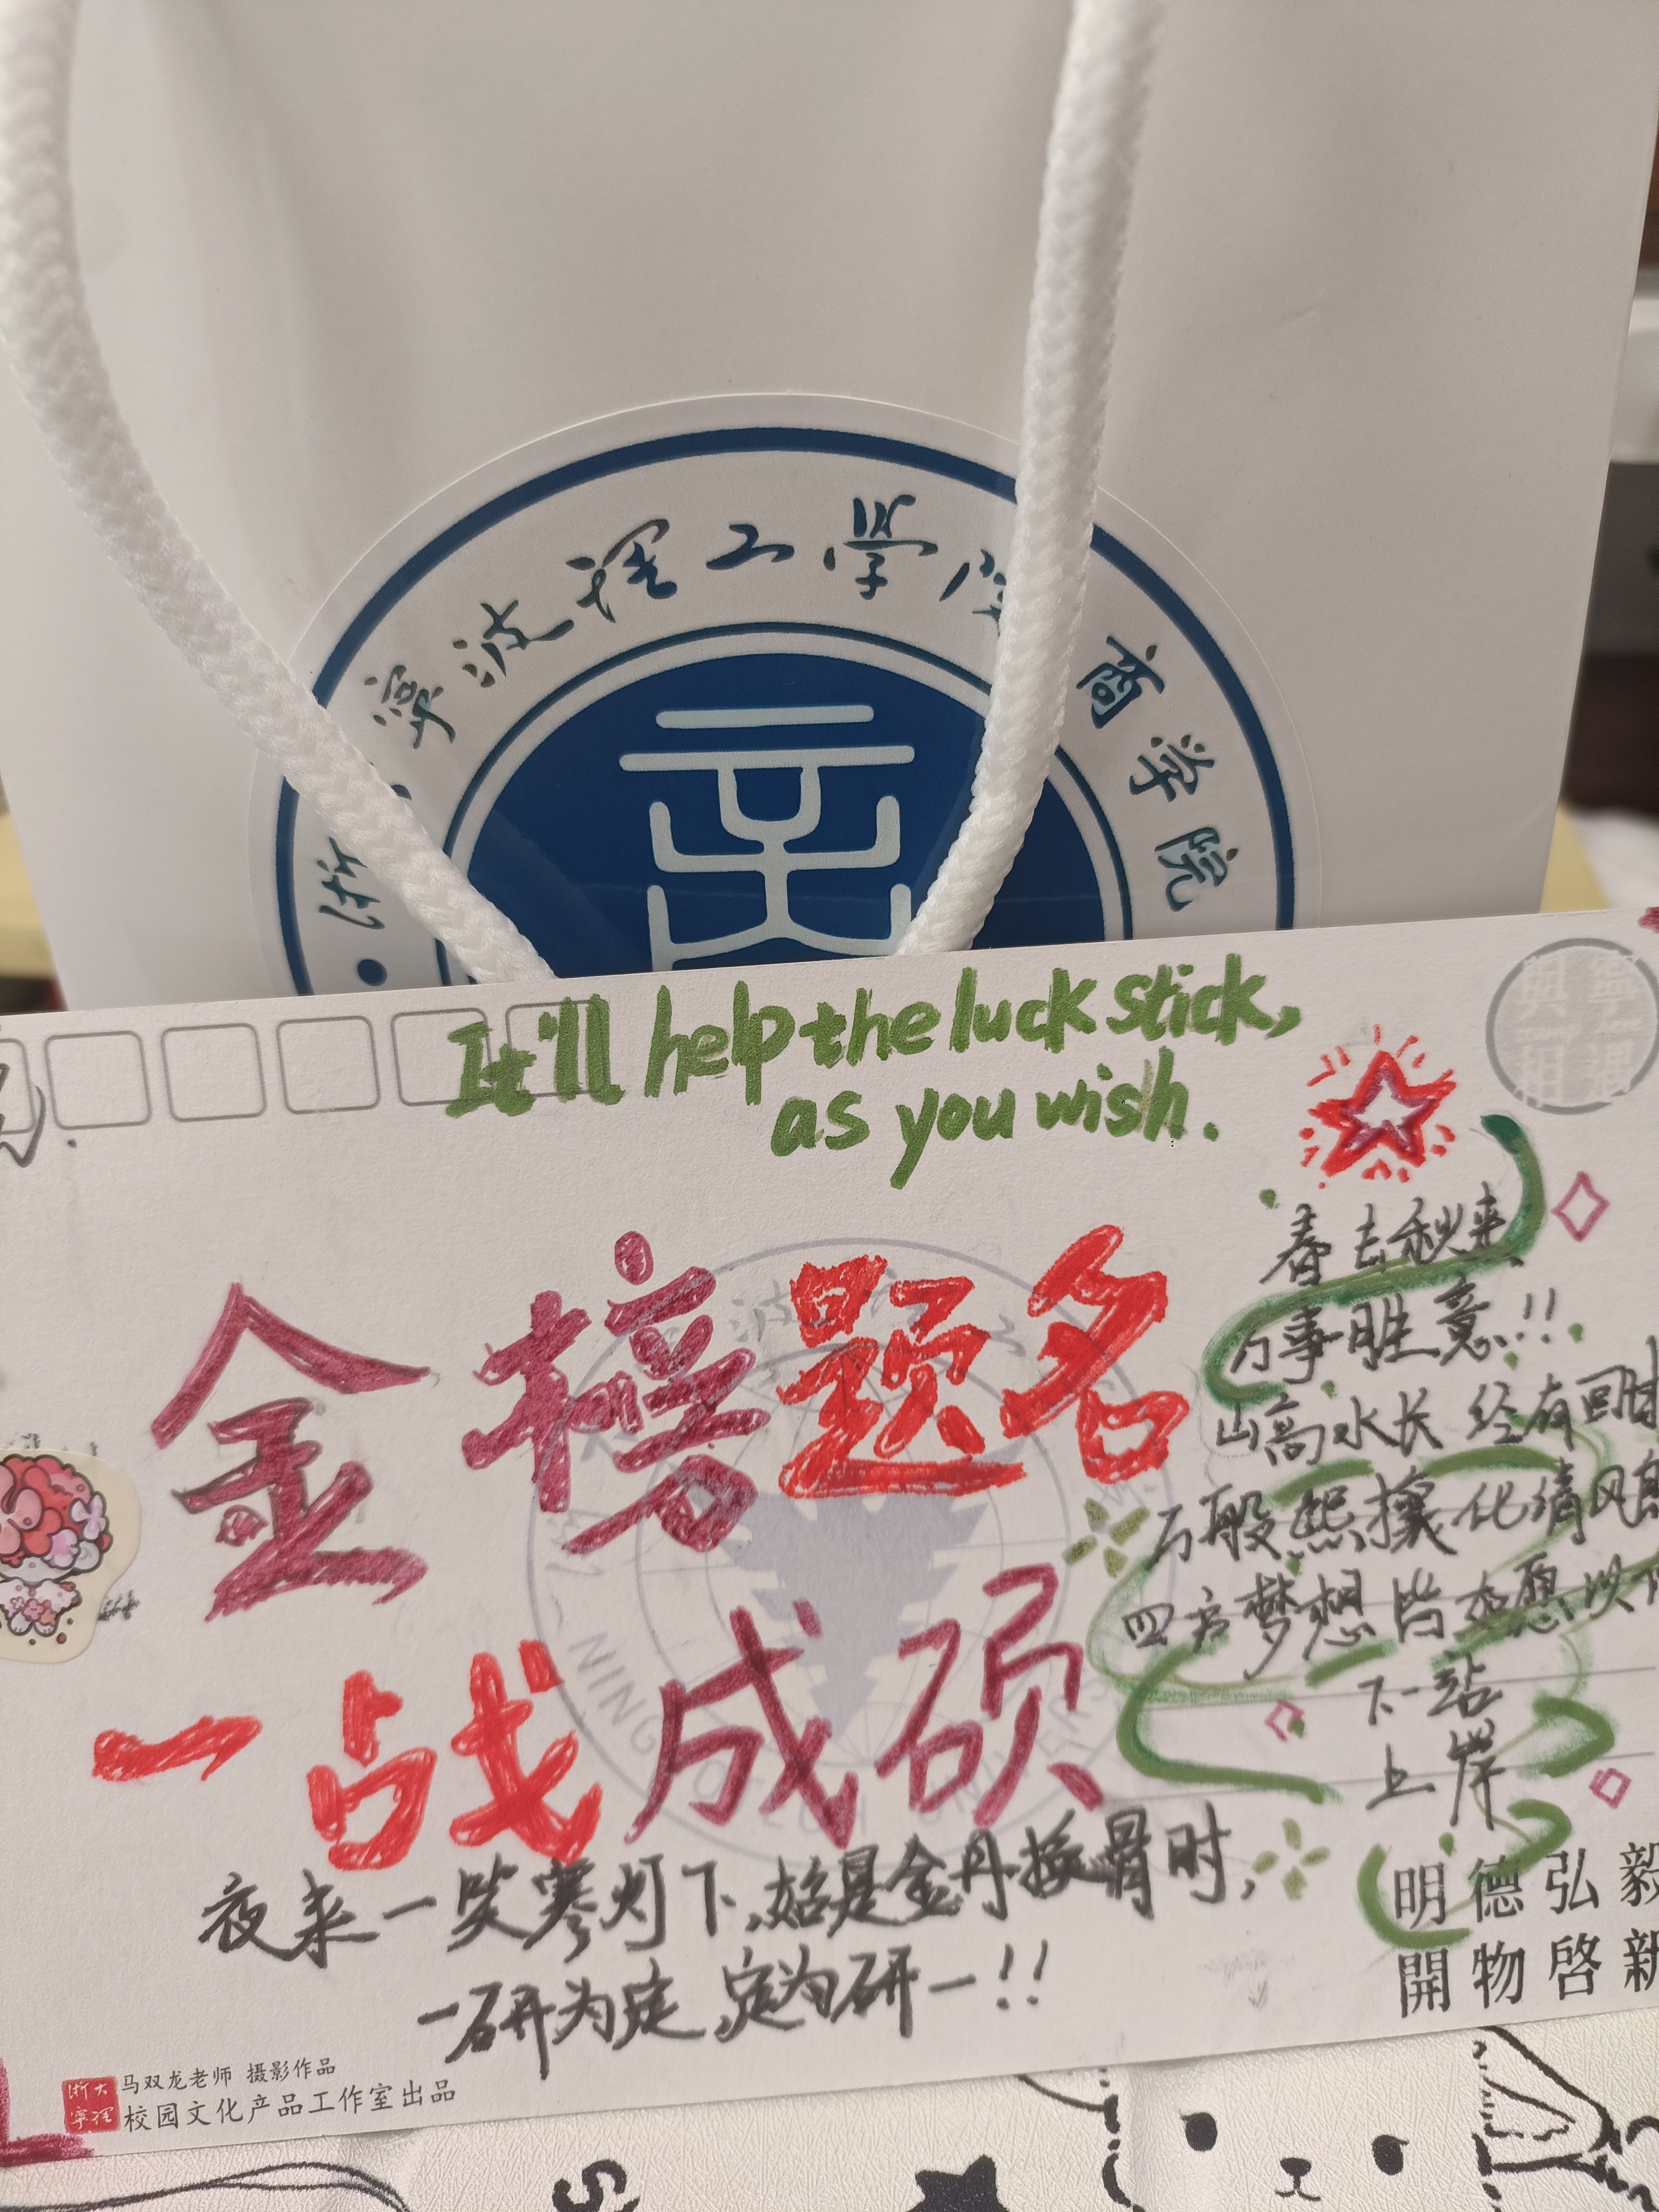 宁波理工学院 商学院
It'll help the luck stick,
as you wish.
金榜题名
一战成硕
春去秋来
万事胜意!!
山高水长 经有回甘
万般熙攘化清风
四方梦想皆交愿以
下一站
上岸
夜来一笑寒灯下,始是金丹换骨时,
一研为定,定为研一!!
明德弘毅
開物啓新
浙大
宁理
马双龙老师 摄影作品
校园文化产品工作室出品